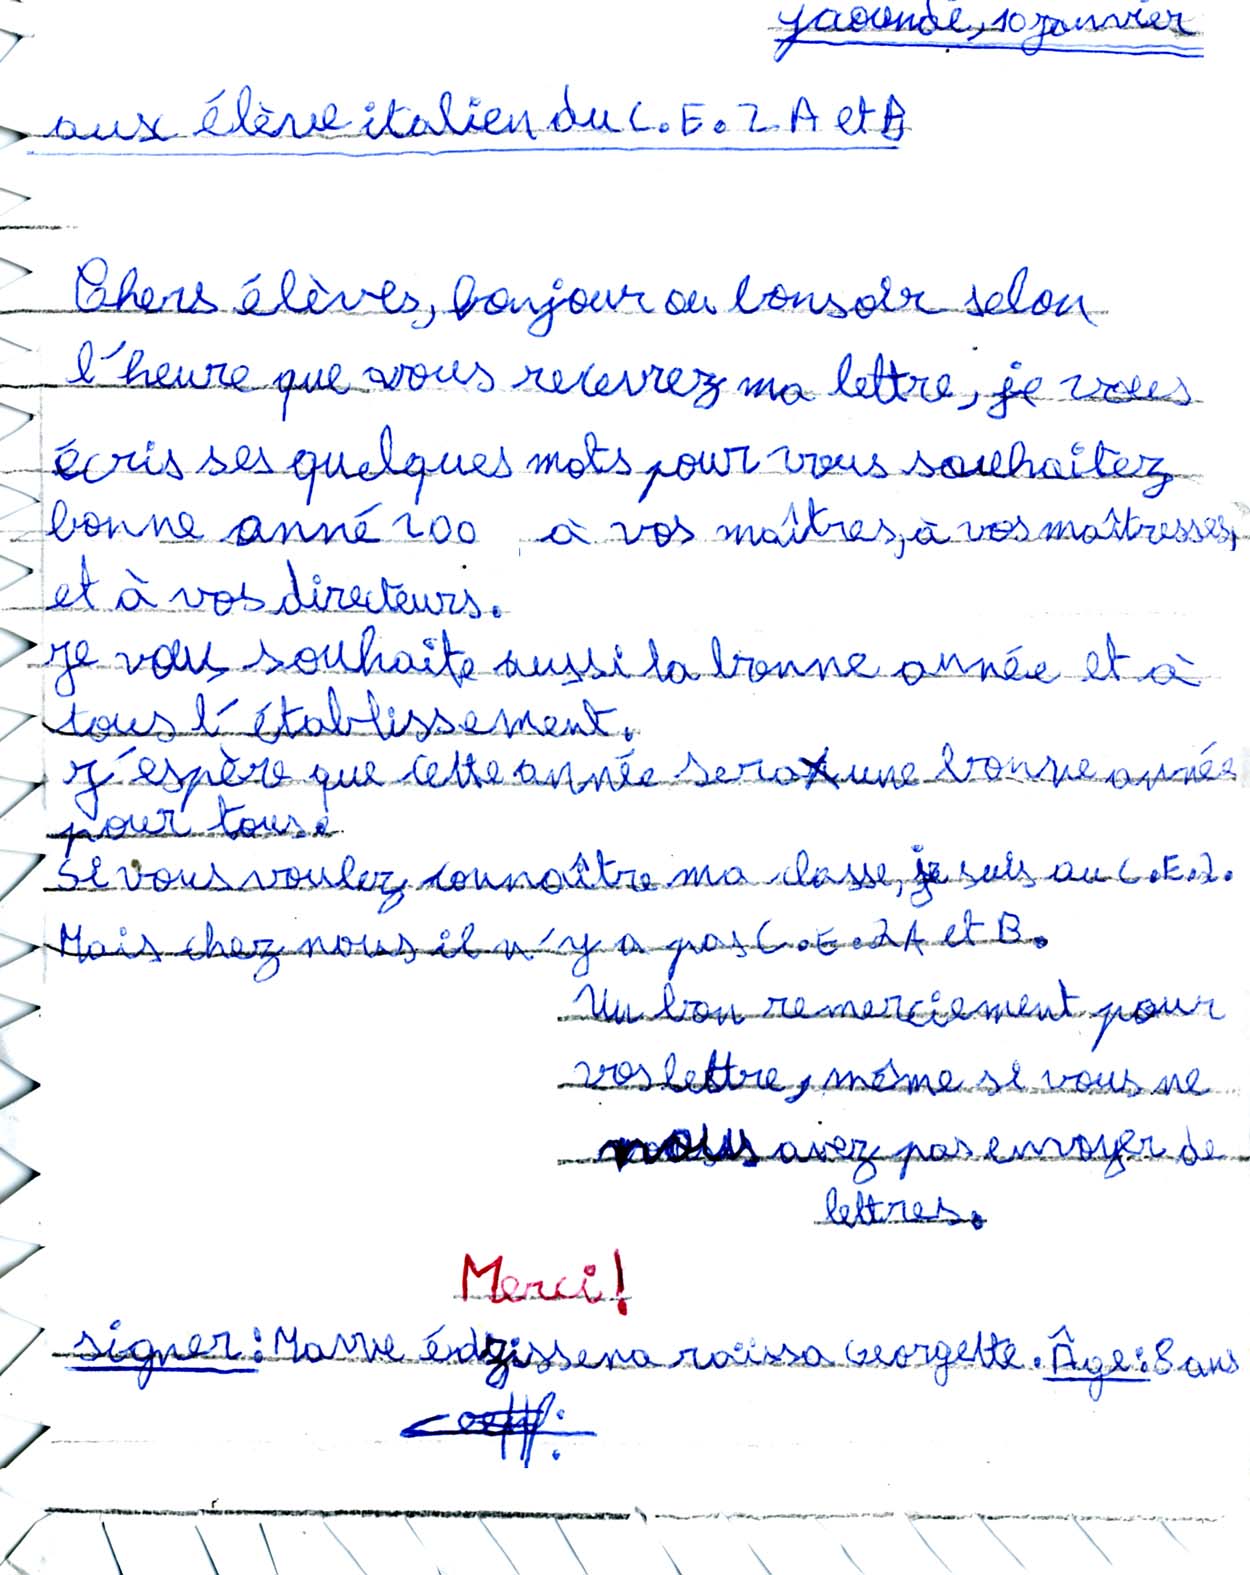 Yaoundé, 10 janvier
aux élève italien du C.E.2 A et B
Chers élèves, bonjour ou bonsoir selon
l'heure que vous recevrez ma lettre, je vous
écris ses quelques mots pour vous souhaitez
bonne anné 200 à vos maîtres, à vos maîtresses,
et à vos directeurs.
Je vous souhaite aussi la bonne année et à
tous l'établissement.
J'espère que cette année sera une bonne année
pour tous.
Si vous voulez connaître ma classe, je suis au C.E.2.
Mais chez nous il n'y a pas C.E.2 A et B.
Un bon remerciement pour
vos lettre, même si vous ne
nous avez pas envoyer de
lettres.
Merci!
signer: raïssa Georgette. Âge: 8 ans